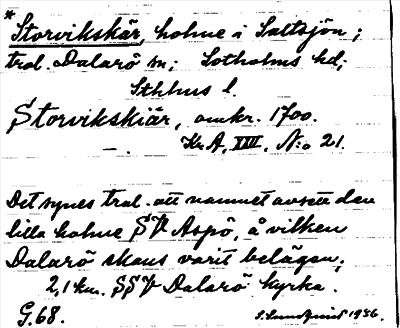 *Storvikskär, holme i Saltsjön;
trol. Dalarö sn; Sotholms hd;
Sthlms l.
Storvikskiär, omkr. 1700.
Kr.A, XXIII, N:o 21.
Det synes trol. att namnet avsett den
lilla holme SV Aspö, å vilken
Dalarö skans varit belägen,
2,1 km. SSV Dalarö kyrka.
G.68. S. Sundquist 1936.